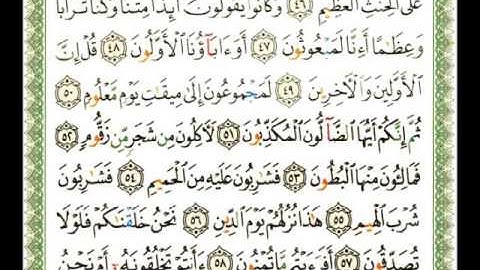 عَلَى ٱلْحِنثِ ٱلْعَظِيمِ ٤٦ وَكَانُوا۟ يَقُولُونَ أَئِذَا مِتْنَا وَكُنَّا تُرَابًا
وَعِظَـٰمًا أَءِنَّا لَمَبْعُوثُونَ ٤٧ أَوَءَابَآؤُنَا ٱلْأَوَّلُونَ ٤٨ قُلْ إِنَّ
ٱلْأَوَّلِينَ وَٱلْـَٔاخِرِينَ ٤٩ لَمَجْمُوعُونَ إِلَىٰ مِيقَـٰتِ يَوْمٍ مَّعْلُومٍ ٥٠
ثُمَّ إِنَّكُمْ أَيُّهَا ٱلضَّآلُّونَ ٱلْمُكَذِّبُونَ ٥١ لَـَٔاكِلُونَ مِن شَجَرٍ مِّن زَقُّومٍ ٥٢
فَمَالِـُٔونَ مِنْهَا ٱلْبُطُونَ ٥٣ فَشَـٰرِبُونَ عَلَيْهِ مِنَ ٱلْحَمِيمِ ٥٤ فَشَـٰرِبُونَ
شُرْبَ ٱلْهِيمِ ٥٥ هَـٰذَا نُزُلُهُمْ يَوْمَ ٱلدِّينِ ٥٦ نَحْنُ خَلَقْنَـٰكُمْ فَلَوْلَا
تُصَدِّقُونَ ٥٧ أَفَرَءَيْتُم مَّا تُمْنُونَ ٥٨ ءَأَنتُمْ تَخْلُقُونَهُۥٓ أَمْ نَحْنُ